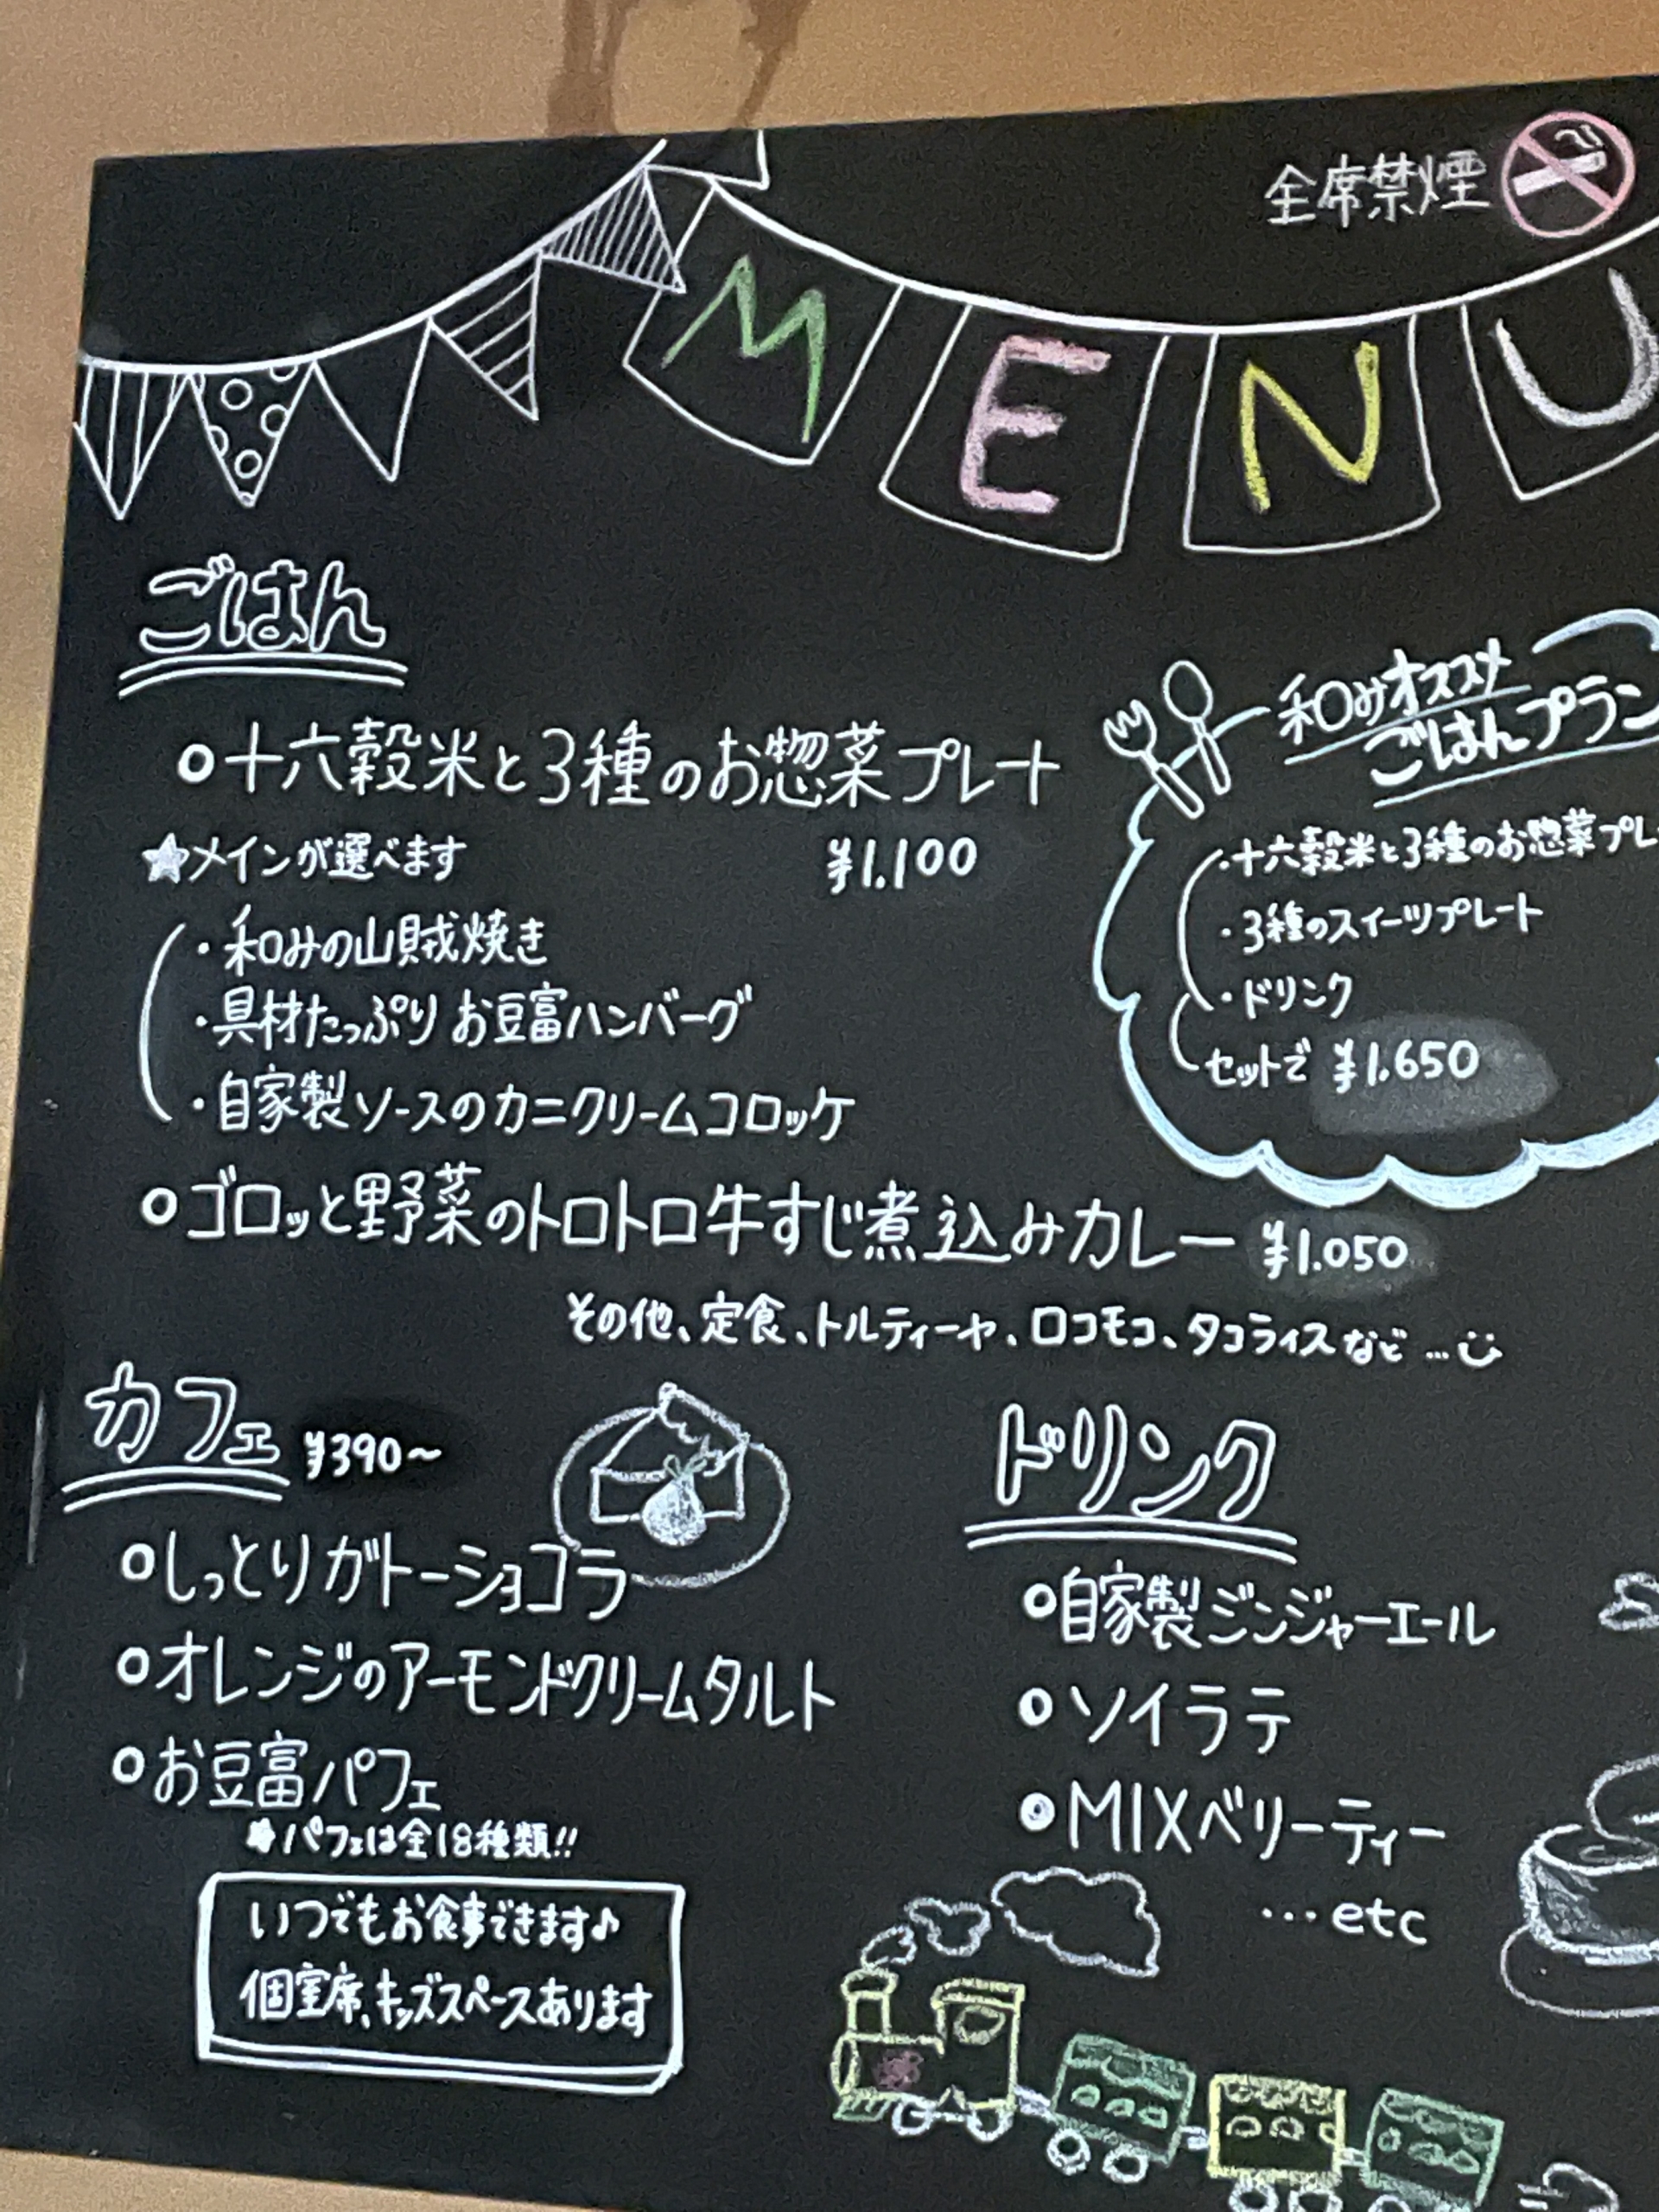 全席禁煙
MENU
ごはん
○十六穀米と3種のお惣菜プレート
★メインが選べます ¥1.100
・和みの山賊焼き
・具材たっぷり お豆富ハンバーグ
・自家製ソースのカニクリームコロッケ
○ゴロッと野菜のトロトロ牛すじ煮込みカレー ¥1.050
その他、定食、トルティーヤ、ロコモコ、タコライスなど…
和みオススメ
ごはんプラン
・十六穀米と3種のお惣菜プレ
・3種のスイーツプレート
・ドリンク
セットで ¥1.650
カフェ ¥390〜
○しっとりガトーショコラ
○オレンジのアーモンドクリームタルト
○お豆富パフェ
パフェは全18種類!!
いつでもお食事できます♪
個室席、キッズスペースあります
ドリンク
○自家製ジンジャーエール
○ソイラテ
○MIXベリーティー
…etc